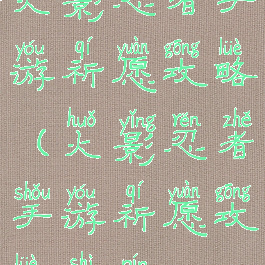 火影忍者手
yóu qí yuàn gōng lüè
游祈愿攻略
huǒ yǐng rěn zhě
(火影忍者
shǒu yóu qí yuàn gōng
手游祈愿攻
lüè shì pín